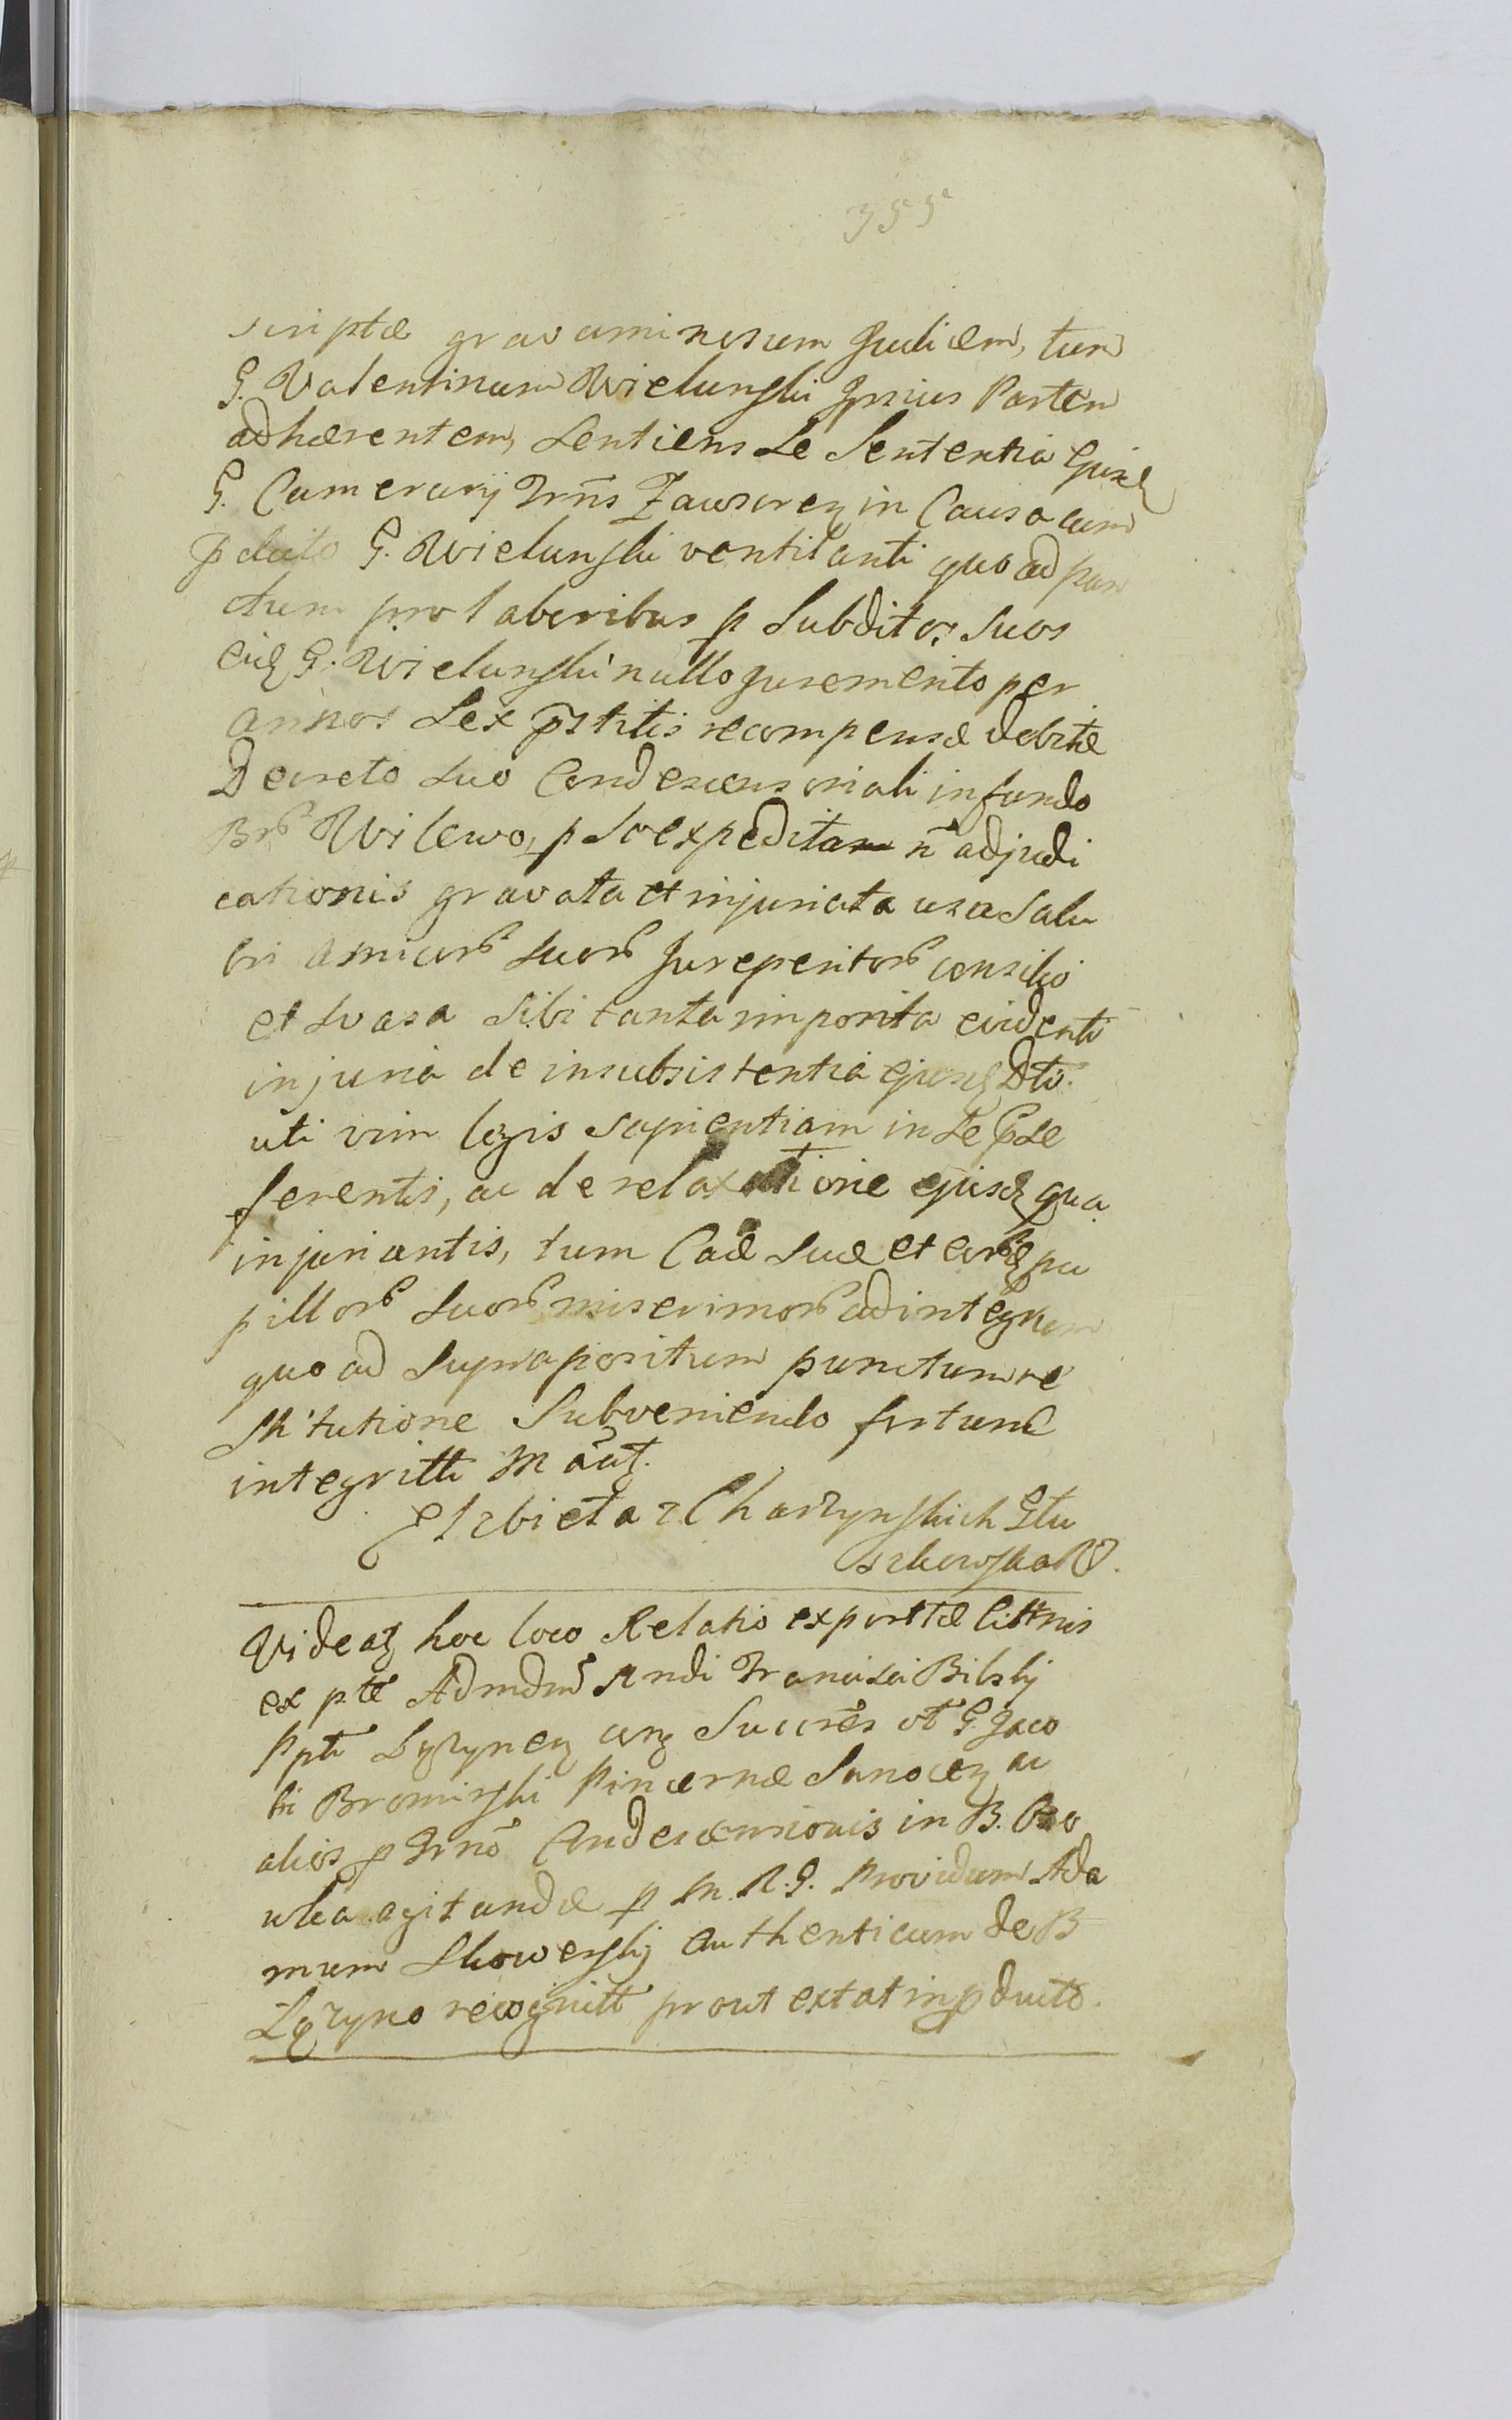 355
scriptæ gravaminosum Judicem, tum
G. Valentinum Wielunski Ipsius Partem
adhærentem, sentiens se Sententia ejusd
G. Camerarij Trrñs Zawscreñ in Causa cum
pdicto G. Wielunski ventilanti quo ad pun
ctum pro laboribus p Subditos suos
eid G. Wielunski nullo juremento per
annos sex p̄stitis recompensæ debitæ
Decreto suo Condescensoriali in fundo
Bor Wilewo, p se expeditam n̄ adjudi
cationis gravata et injuriata usa salu
bri amicor suor Jureperitor consilio
et suasa sibi tanta imporita evidenti
injuria de insubsistentia ejusd Dti.
uti vim legis sapientiam in se p̄ se
ferentis, ac de relaxatione ejusd qua
injuriantis, tum Cæ suæ et eord pu
pillor suor miserimor ad integrum
quo ad supra positum punctum re
stitutione subveniendo fortunæ
integritti M
Elzbieta z Charzynskich Glu
szkowska
Videat hoc loco Relatio exportæ littris
ex pte Admdm Rndi Francisci Bilskij
Ppti Lęzyneñ Succres et G. Jaco
bi Bromirski Pincernæ Sanoceñ ac
alios p Trno Condescensionis in B.
agitandæ p M. R. G. Providum Ada
mum Skowerskij authenticum de B
Lęzyno recognitt prout extat in pducto.